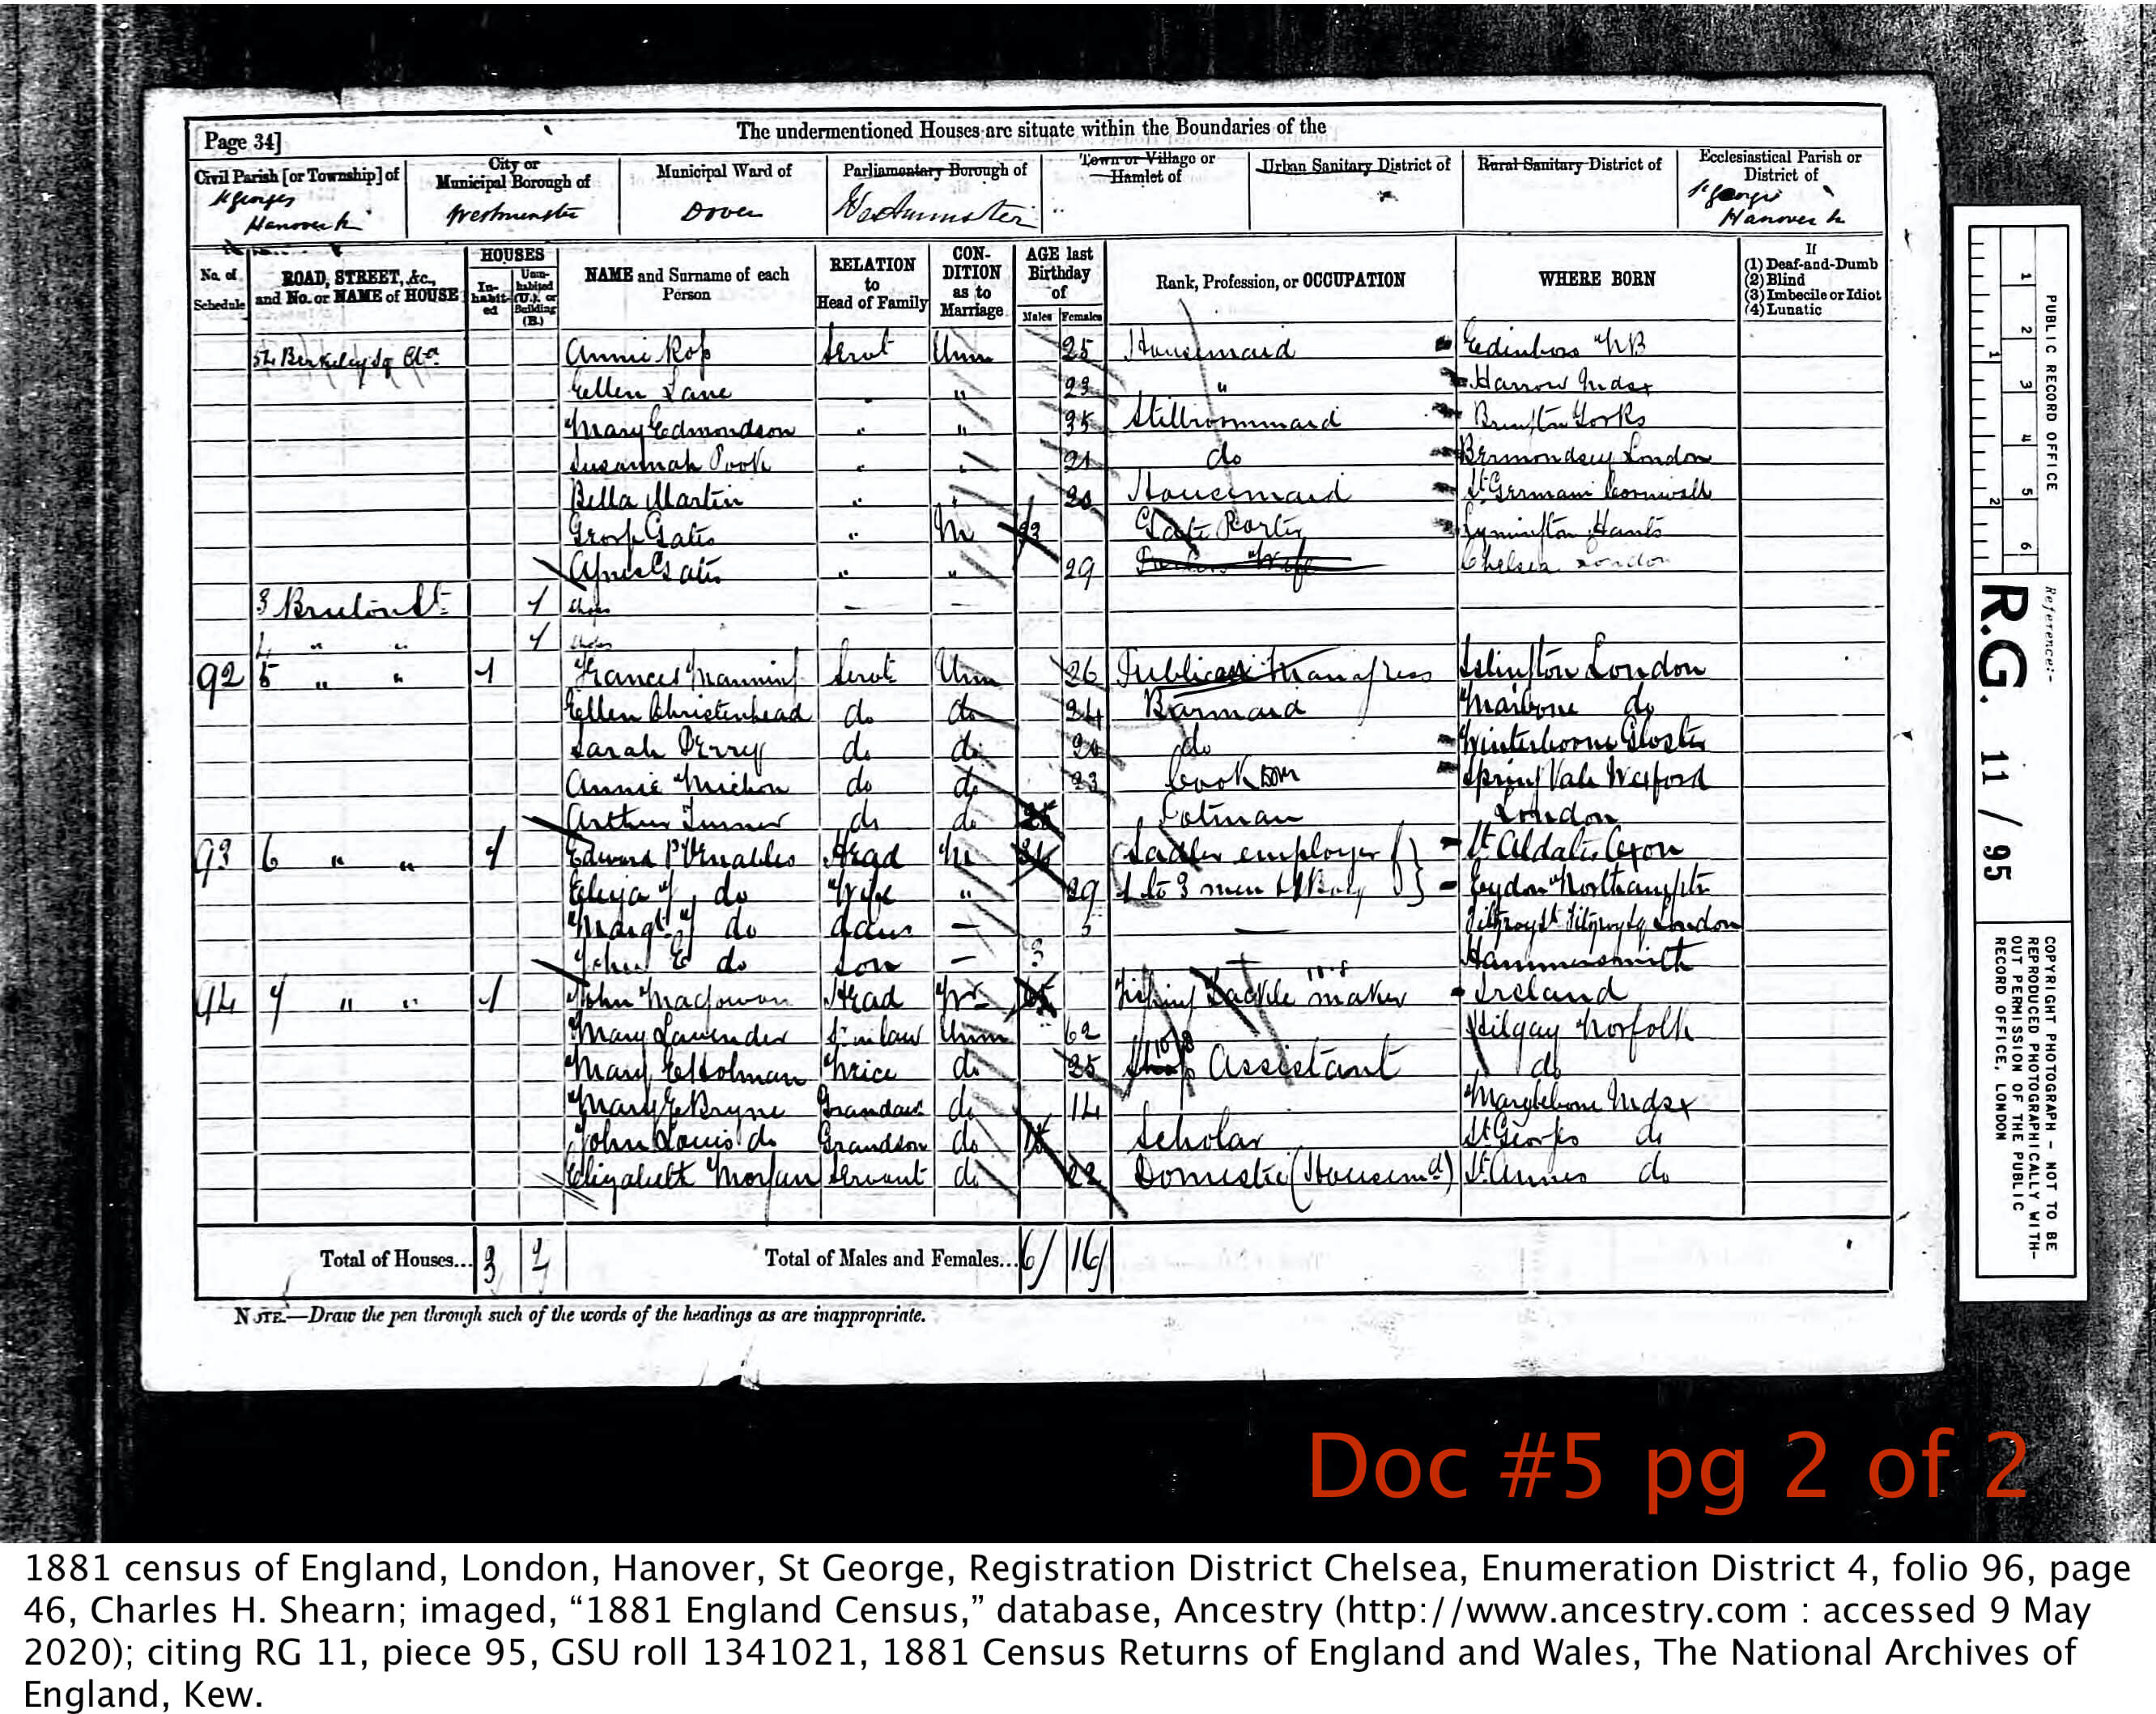 Page 34]
The undermentioned Houses are situate within the Boundaries of the
Civil Parish [or Township] of
City or Municipal Borough of
Municipal Ward of
Parliamentary Borough of
Town or Village or Hamlet of
Urban Sanitary District of
Rural Sanitary District of
Ecclesiastical Parish or District of
St Georges Hanover
Westminster
Dover
Westminster
St Georges Hanover
No. of Schedule
ROAD, STREET, &c., and No. or NAME of HOUSE
HOUSES
In-habit-ed
Unin-habited (U.), or Building (B.)
NAME and Surname of each Person
RELATION to Head of Family
CON-DITION as to Marriage
AGE last Birthday of
Males
Females
Rank, Profession, or OCCUPATION
WHERE BORN
If
(1) Deaf-and-Dumb
(2) Blind
(3) Imbecile or Idiot
(4) Lunatic
54 Berkeley Sq Annie Rofs Servt Unm 25 Housemaid Edinboro NB
Ellen Lane " " 23 " Harrow Mdsx
Mary Edmondson " " 35 Stillroommaid Yorks
Susannah Pook " " 21 do Bermondsey London
Bella Martin " " Housemaid St Germans Cornwall
Gates " M Gate Porter Lymington Hants
Agnes Gates " " 29 Porters Wife Chelsea London
3 Bruton St 1
4 " " 1
92 5 " " 1 Frances Manning Servt Unm 26 Publicans Manageress Islington London
Ellen Christenhead do do 24 Barmaid Marbone do
Sarah Perry do do do Winterborne Gloster
Annie do do 23 Cook Spring Vale
Arthur Turner do do Potman London
93 6 " " 1 Edward P Venables Head M Sadler employer St Aldates Oxon
Eliza do Wife " 29 3 men & 1 Boy Eydon Northampton
Margt do daur — 5 — Fitzroy St Fitzroy Sq London
John E do Son — 3 Hammersmith
94 7 " " 1 John Macgowan Head Fishing Tackle maker Ireland
Mary Lavender Unm 62 Hilgay Norfolk
Mary E Holman Niece do 35 Shop Assistant do
Mary E Bryne Grandaur do 14 Marylebone Mdsx
John Louis do Grandson do Scholar St Georges do
Elizabeth Morgan Servant do 22 Domestic (Housemd) St Annes do
Total of Houses... 3 2
Total of Males and Females... 6 16
NOTE.—Draw the pen through such of the words of the headings as are inappropriate.
PUBLIC RECORD OFFICE
1 2 3 4 5 6
1 2
Reference:-
R.G. 11 / 95
COPYRIGHT PHOTOGRAPH - NOT TO BE REPRODUCED PHOTOGRAPHICALLY WITH-OUT PERMISSION OF THE PUBLIC RECORD OFFICE, LONDON
Doc #5 pg 2 of 2
1881 census of England, London, Hanover, St George, Registration District Chelsea, Enumeration District 4, folio 96, page
46, Charles H. Shearn; imaged, “1881 England Census,” database, Ancestry (http://www.ancestry.com : accessed 9 May
2020); citing RG 11, piece 95, GSU roll 1341021, 1881 Census Returns of England and Wales, The National Archives of
England, Kew.